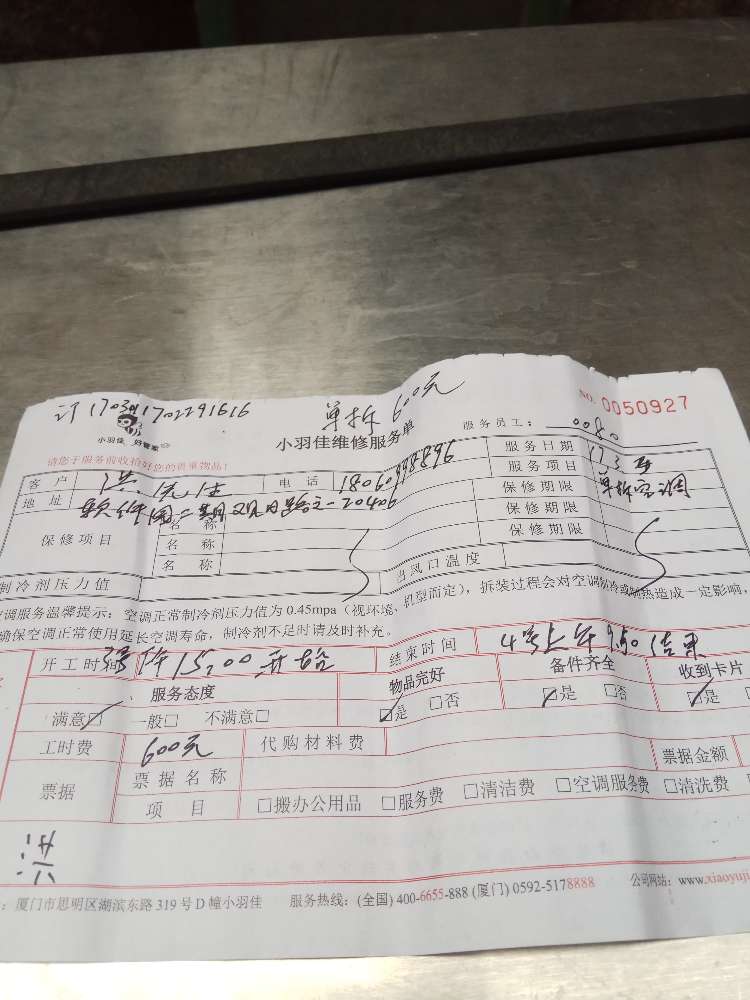 单拆 600元
NO. 0050927
小羽佳 好管家
小羽佳维修服务单
服务员工: 0080
请您于服务前收拾好您的贵重物品!
客户 洪 电话 服务日期
地址 软件园二期观日路 20406 服务项目 单拆空调
保修项目 名称 保修期限
名称 保修期限
名称 保修期限
制冷剂压力值 出风口温度
调服务温馨提示: 空调正常制冷剂压力值为 0.45mpa (视环境、机型而定), 拆装过程会对空调制冷或制热造成一定影响,
确保空调正常使用延长空调寿命, 制冷剂不足时请及时补充。
开工时间 3号 15:00开始 结束时间 4号上午9:50结束
服务态度 物品完好 备件齐全 收到卡片
满意□ 一般□ 不满意□ □是 □否 □是 □否 □是
工时费 600元 代购材料费
票据 票据名称 票据金额
项目 □搬办公用品 □服务费 □清洁费 □空调服务费 □清洗费
: 厦门市思明区湖滨东路 319 号 D 幢小羽佳 服务热线: (全国) 400-6655-888 (厦门) 0592-5178888 公司网站: www.xiaoyuji